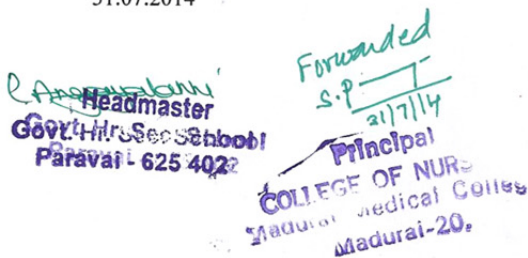 31.07.2014
Headmaster
Govt. Hr. Sec School
Paravai - 625 402
Forwarded
S.P
31/7/14
Principal
COLLEGE OF NURS
Madurai Medical Colleg
Madurai-20.